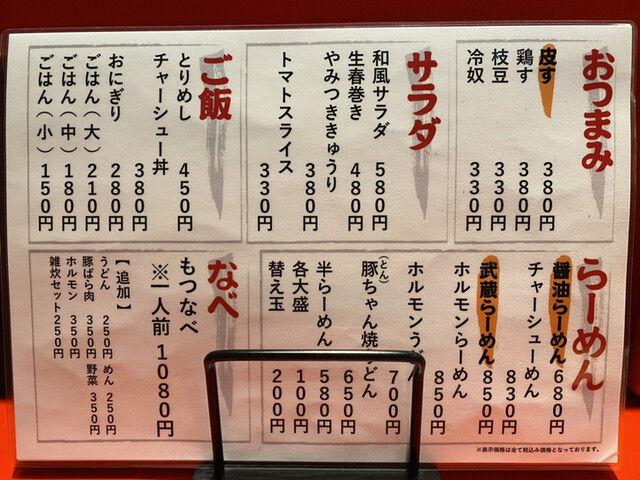 おつまみ
皮す 380円
鶏す 380円
枝豆 330円
冷奴 330円
サラダ
和風サラダ 580円
生春巻き 480円
やみつききゅうり 380円
トマトスライス 330円
ご飯
とりめし 450円
チャーシュー丼 380円
おにぎり 280円
ごはん(大) 210円
ごはん(中) 180円
ごはん(小) 150円
らーめん
醤油らーめん 680円
チャーシューめん 830円
武蔵らーめん 850円
ホルモンらーめん 850円
ホルモンうどん 700円
豚(とん)ちゃん焼うどん 650円
半らーめん 580円
各大盛 100円
替え玉 200円
※表示価格は全て税込み価格となっております。
なべ
もつなべ
※一人前 1080円
【追加】
うどん 250円 めん 250円
豚ばら肉 350円 野菜 350円
ホルモン 350円
雑炊セット 250円